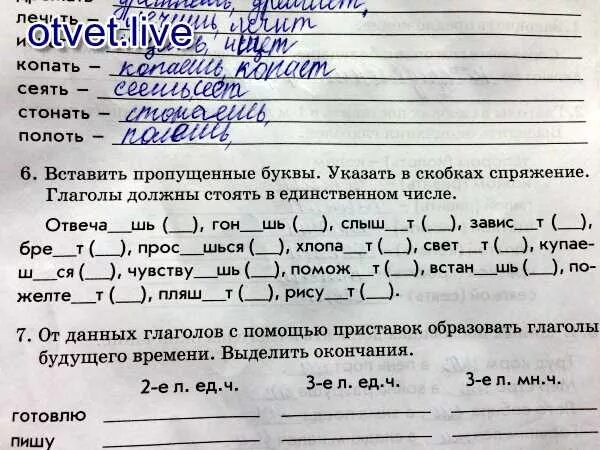 лечить – лечишь, лечит
otvet.live
копать – копаешь, копает
сеять – сеешь, сеет
стонать – стонаешь,
полоть – полешь,
6. Вставить пропущенные буквы. Указать в скобках спряжение.
Глаголы должны стоять в единственном числе.
Отвеча__шь (__), гон__шь (__), слыш__т (__), завис__т (__),
бре__т (__), прос__шься (__), хлопа__т (__), свет__т (__), купае-
ш__ся (__), чувству__шь (__), помож__т (__), встан__шь (__), по-
желте__т (__), пляш__т (__), рису__т (__).
7. От данных глаголов с помощью приставок образовать глаголы
будущего времени. Выделить окончания.
2-е л. ед.ч. 3-е л. ед.ч. 3-е л. мн.ч.
готовлю
пишу